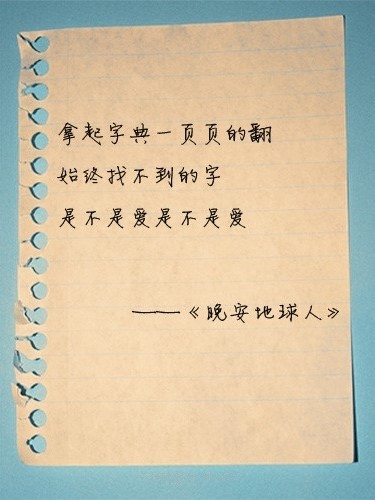 拿起字典一页页的翻
始终找不到的字
是不是爱是不是爱
——《晚安地球人》